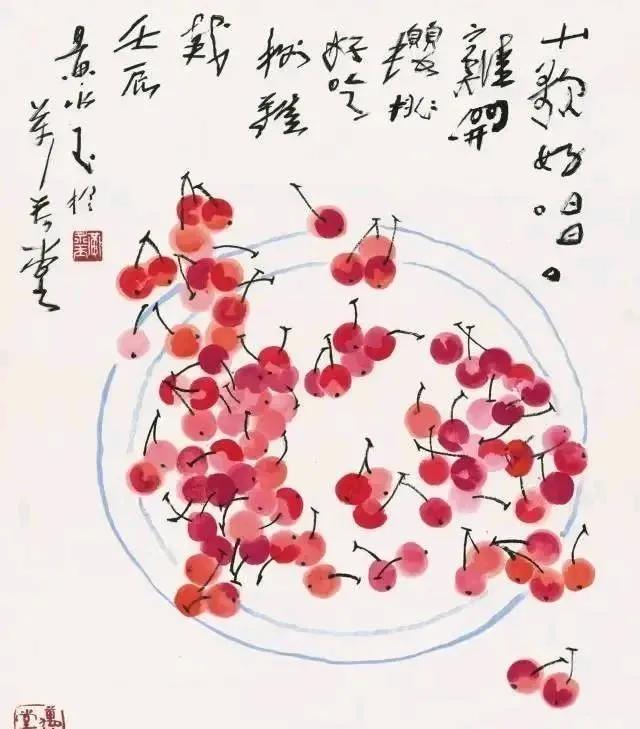 山歌好唱
難開
櫻桃
好吃
樹難
栽
壬辰
黃永玉於
萬荷堂